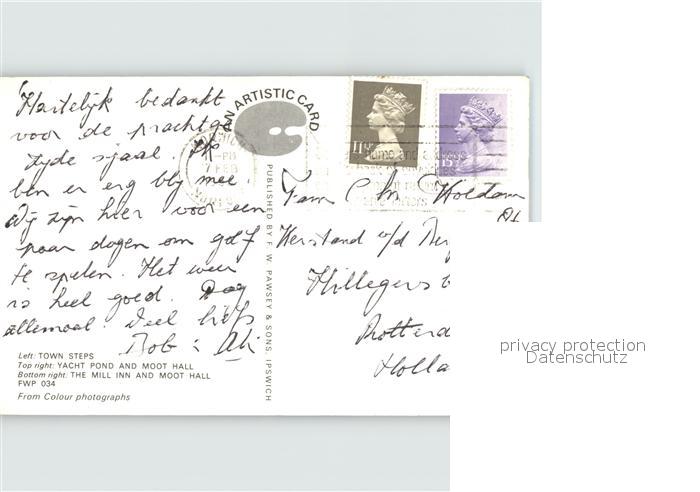 Hartelijk bedankt
voor de prachtge
zyde sjaal. Ik
ben er erg blij mee.
Wij zijn hier voor een
paar dagen om golf
te spelen. Het weer
is heel goed. Dag
allemaal. Veel liefs
Bob : Ali
Left: TOWN STEPS
Top right: YACHT POND AND MOOT HALL
Bottom right: THE MILL INN AND MOOT HALL
FWP 034
From Colour photographs
AN ARTISTIC CARD
PUBLISHED BY F. W. PAWSEY & SONS, IPSWICH
PM
7 FEB
11½P
15½P
Fam C
v/d
Hillegers
Rotterd
Holla
privacy protection
Datenschutz